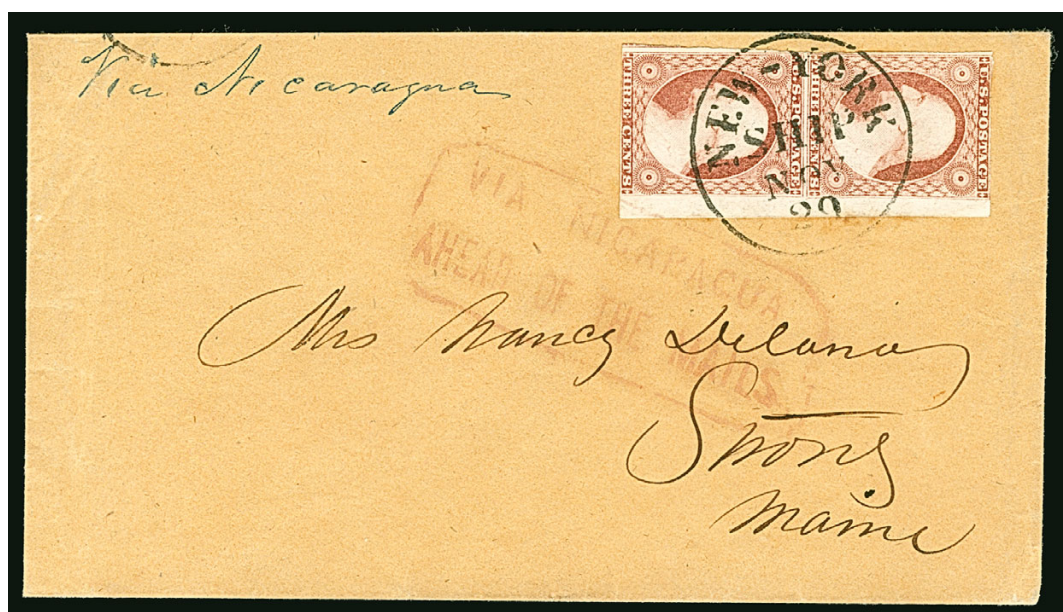 Via Nicaragua
THREE CENTS
U.S. POSTAGE
THREE CENTS
U.S. POSTAGE
NEW-YORK
SHIP
NOV
29
VIA NICARAGUA
AHEAD OF THE MAILS
Mrs Nancy Delano
Strong
Maine